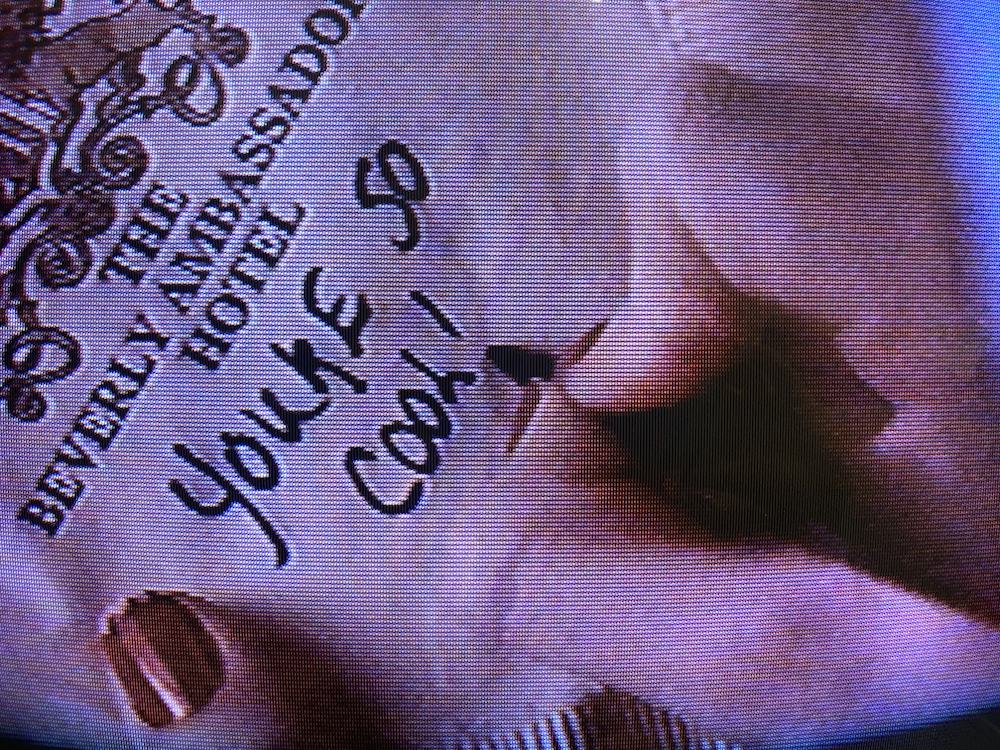 THE
BEVERLY AMBASSADOR
HOTEL
YOURE SO
COOL!